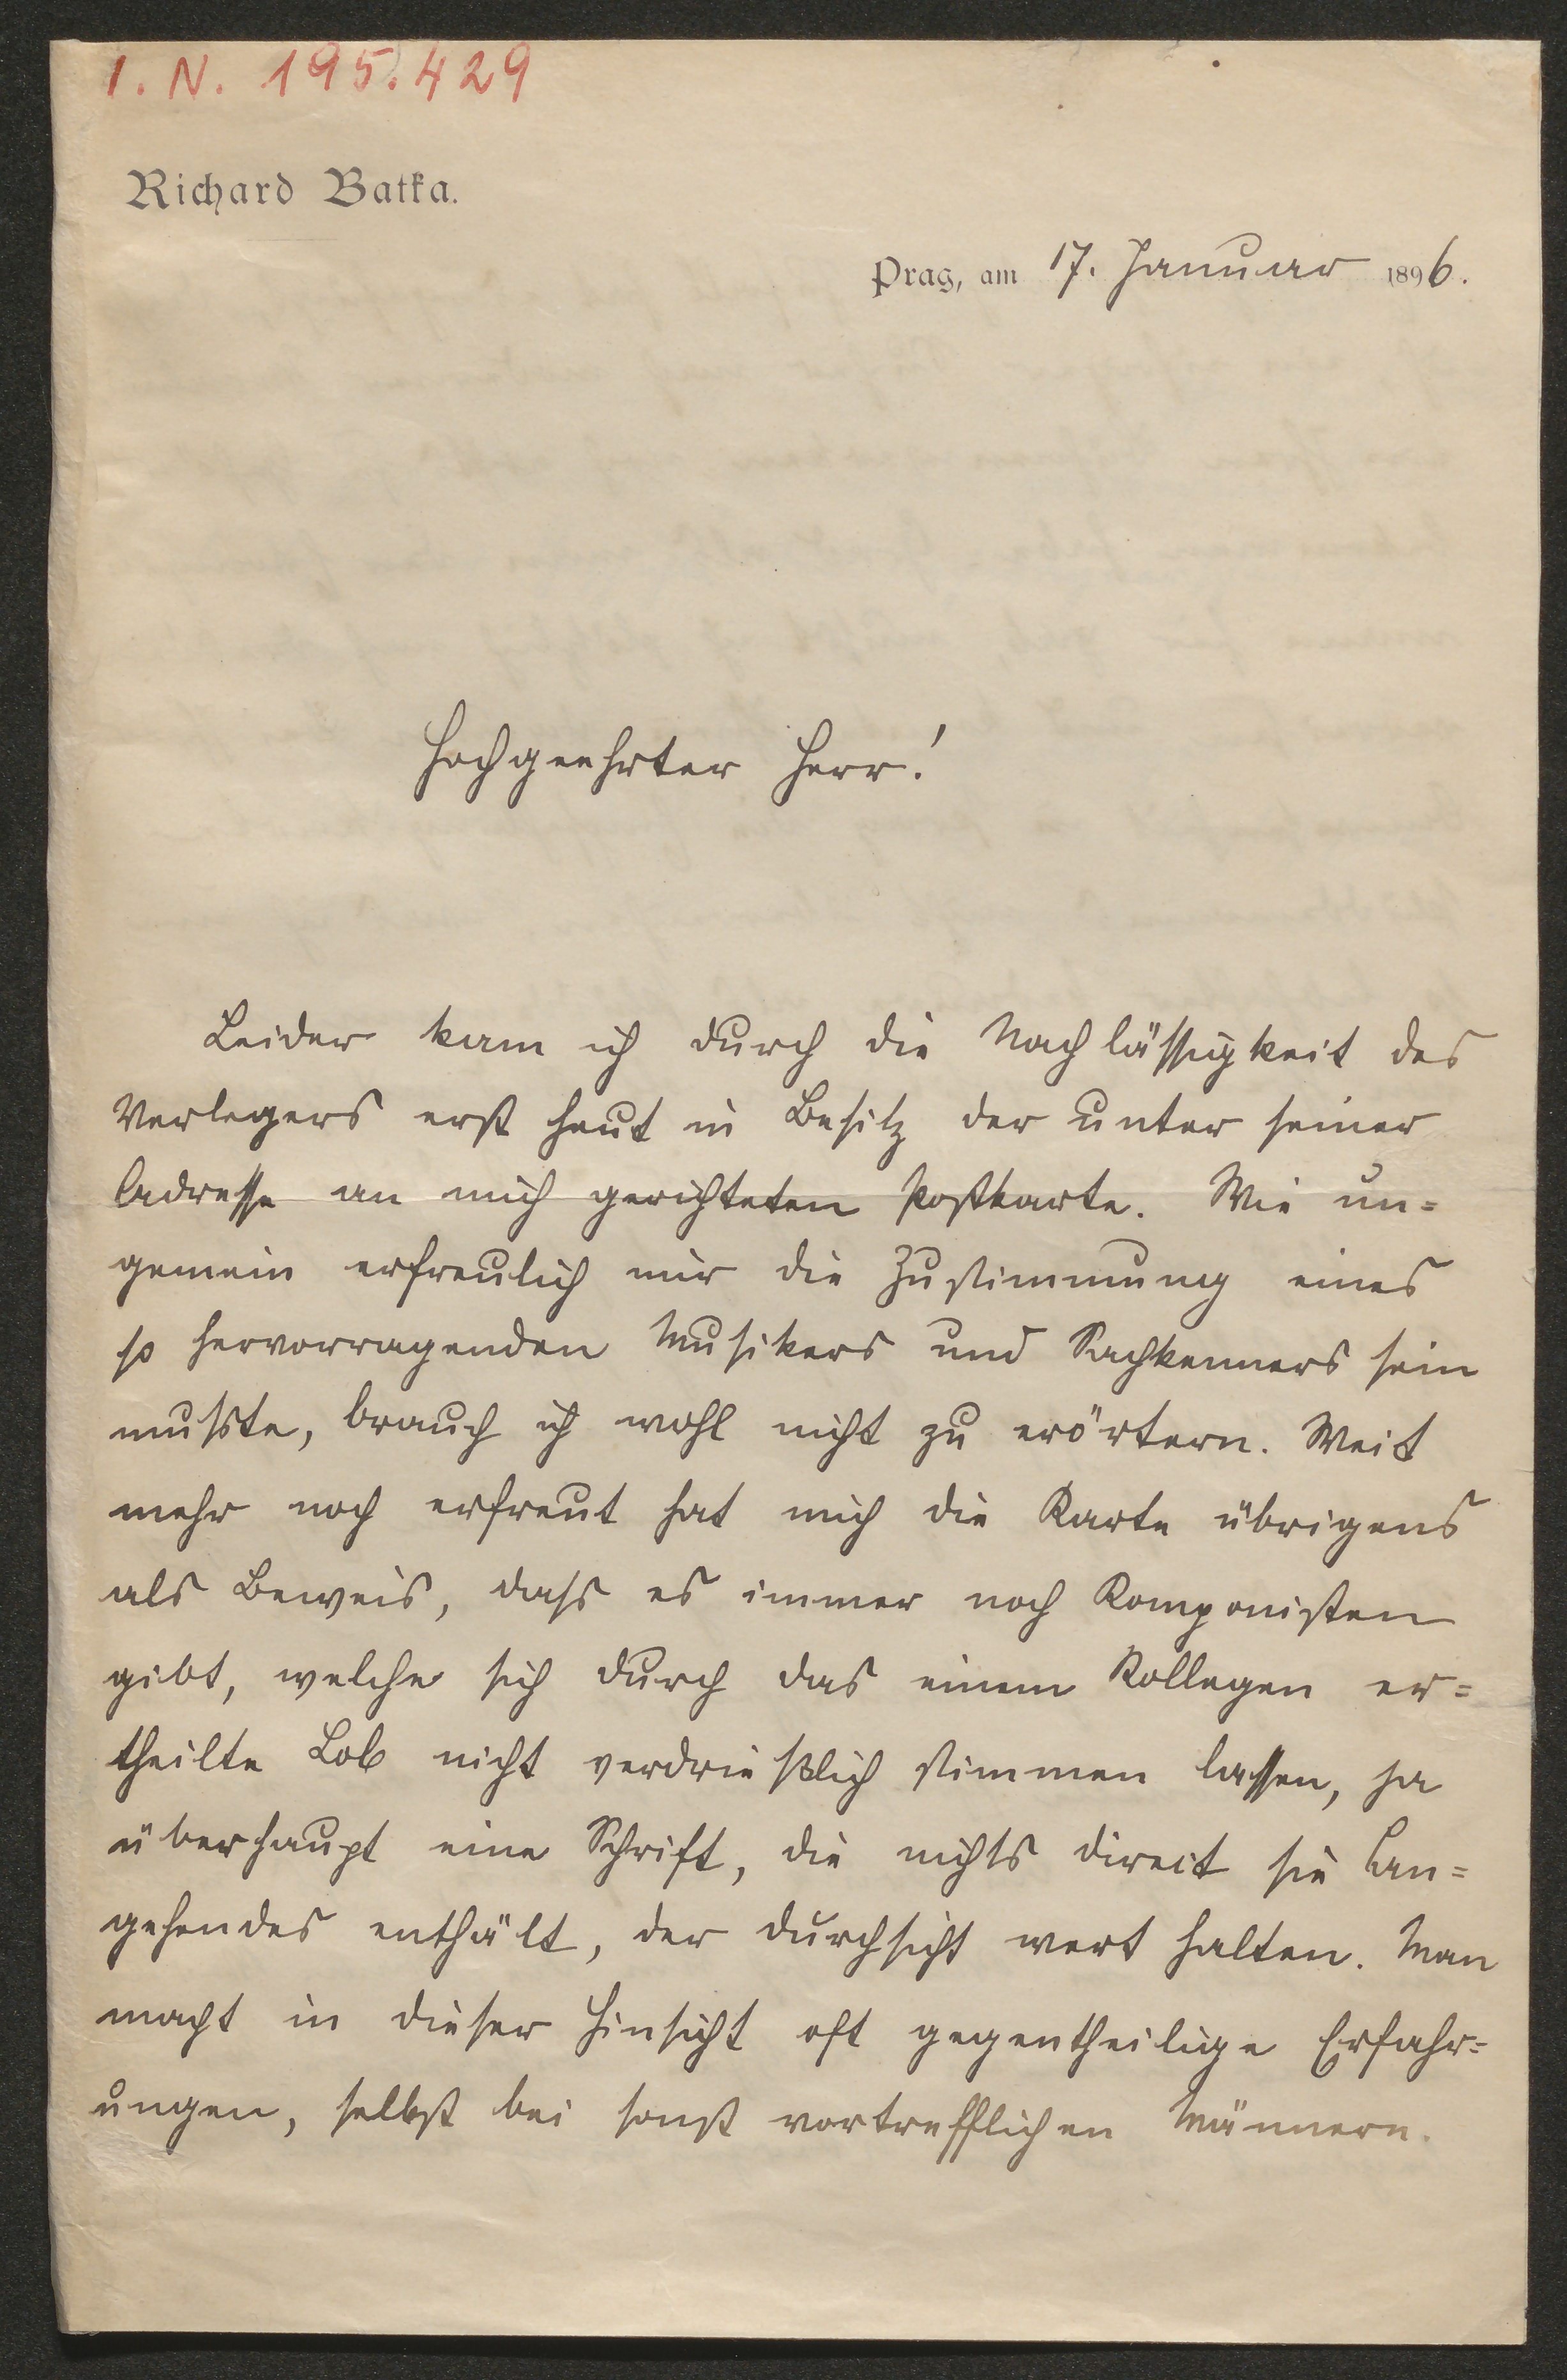 I. N. 195.429
Richard Batka.
Prag, am 17. Januar 1896.
Hochgeehrter Herr!
Leider kam ich durch die Nachlässigkeit des
Verlegers erst heut in Besitz der unter seiner
Adresse an mich gerichteten Postkarte. Wie un=
gemein erfreulich mir die Zustimmung eines
so hervorragenden Musikers und Sachkenners sein
musste, brauch ich wohl nicht zu erörtern. Weit
mehr noch erfreut hat mich die Karte übrigens
als Beweis, dass es immer noch Komponisten
gibt, welche sich durch das einem Kollegen er=
theilte Lob nicht verdrießlich stimmen lassen, ja
überhaupt eine Schrift, die nichts direct sie An=
gehendes enthält, der Durchsicht wert halten. Man
macht in dieser Hinsicht oft gegentheilige Erfahr=
ungen, selbst bei sonst vortrefflichen Männern.